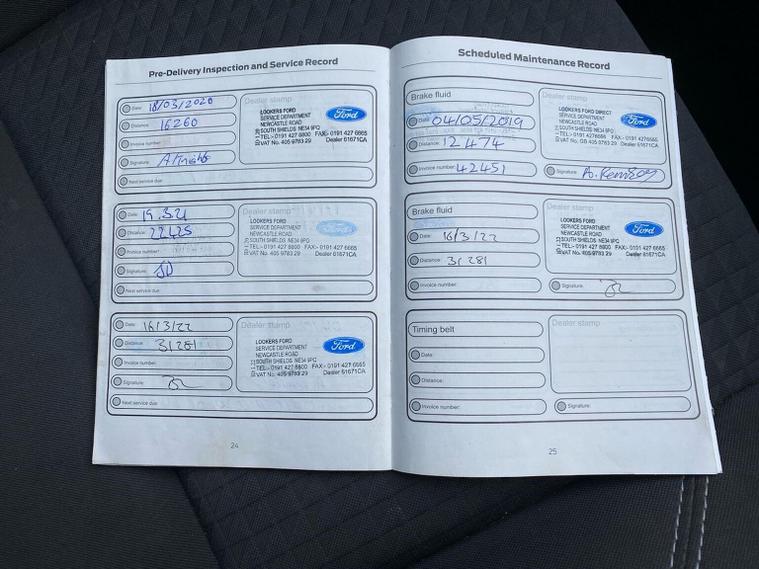 Pre-Delivery Inspection and Service Record
Date: 18/03/2020
Distance: 16260
Invoice number:
Signature: A Knights
Next service due:
Dealer stamp
LOOKERS FORD
SERVICE DEPARTMENT
NEWCASTLE ROAD
SOUTH SHIELDS NE34 9PQ
TEL:- 0191 427 6800 FAX:- 0191 427 6665
VAT No. 405 9783 29 Dealer 61671CA
Ford
Date: 19.3.21
Distance: 22425
Invoice number:
Signature:
Next service due:
Dealer stamp
LOOKERS FORD
SERVICE DEPARTMENT
NEWCASTLE ROAD
SOUTH SHIELDS NE34 9PQ
TEL:- 0191 427 6800 FAX:- 0191 427 6665
VAT No. 405 9783 29 Dealer 61671CA
Ford
Date: 16/3/22
Distance: 31281
Invoice number:
Signature:
Next service due:
Dealer stamp
LOOKERS FORD
SERVICE DEPARTMENT
NEWCASTLE ROAD
SOUTH SHIELDS NE34 9PQ
TEL:- 0191 427 6800 FAX:- 0191 427 6665
VAT No. 405 9783 29 Dealer 61671CA
Ford
24
Scheduled Maintenance Record
Brake fluid
Date: 04/05/2019
Distance: 12474
Invoice number: 42451
Dealer stamp
LOOKERS FORD DIRECT
SERVICE DEPARTMENT
NEWCASTLE ROAD
SOUTH SHIELDS NE34 9PQ
Dealer 61671CA
Ford
Signature:
Brake fluid
Date: 16/3/22
Distance: 31281
Invoice number:
Dealer stamp
LOOKERS FORD
SERVICE DEPARTMENT
NEWCASTLE ROAD
SOUTH SHIELDS NE34 9PQ
TEL:- 0191 427 6800 FAX:- 0191 427 6665
VAT No. 405 9783 29 Dealer 61671CA
Ford
Signature:
Timing belt
Date:
Distance:
Invoice number:
Dealer stamp
Signature:
25